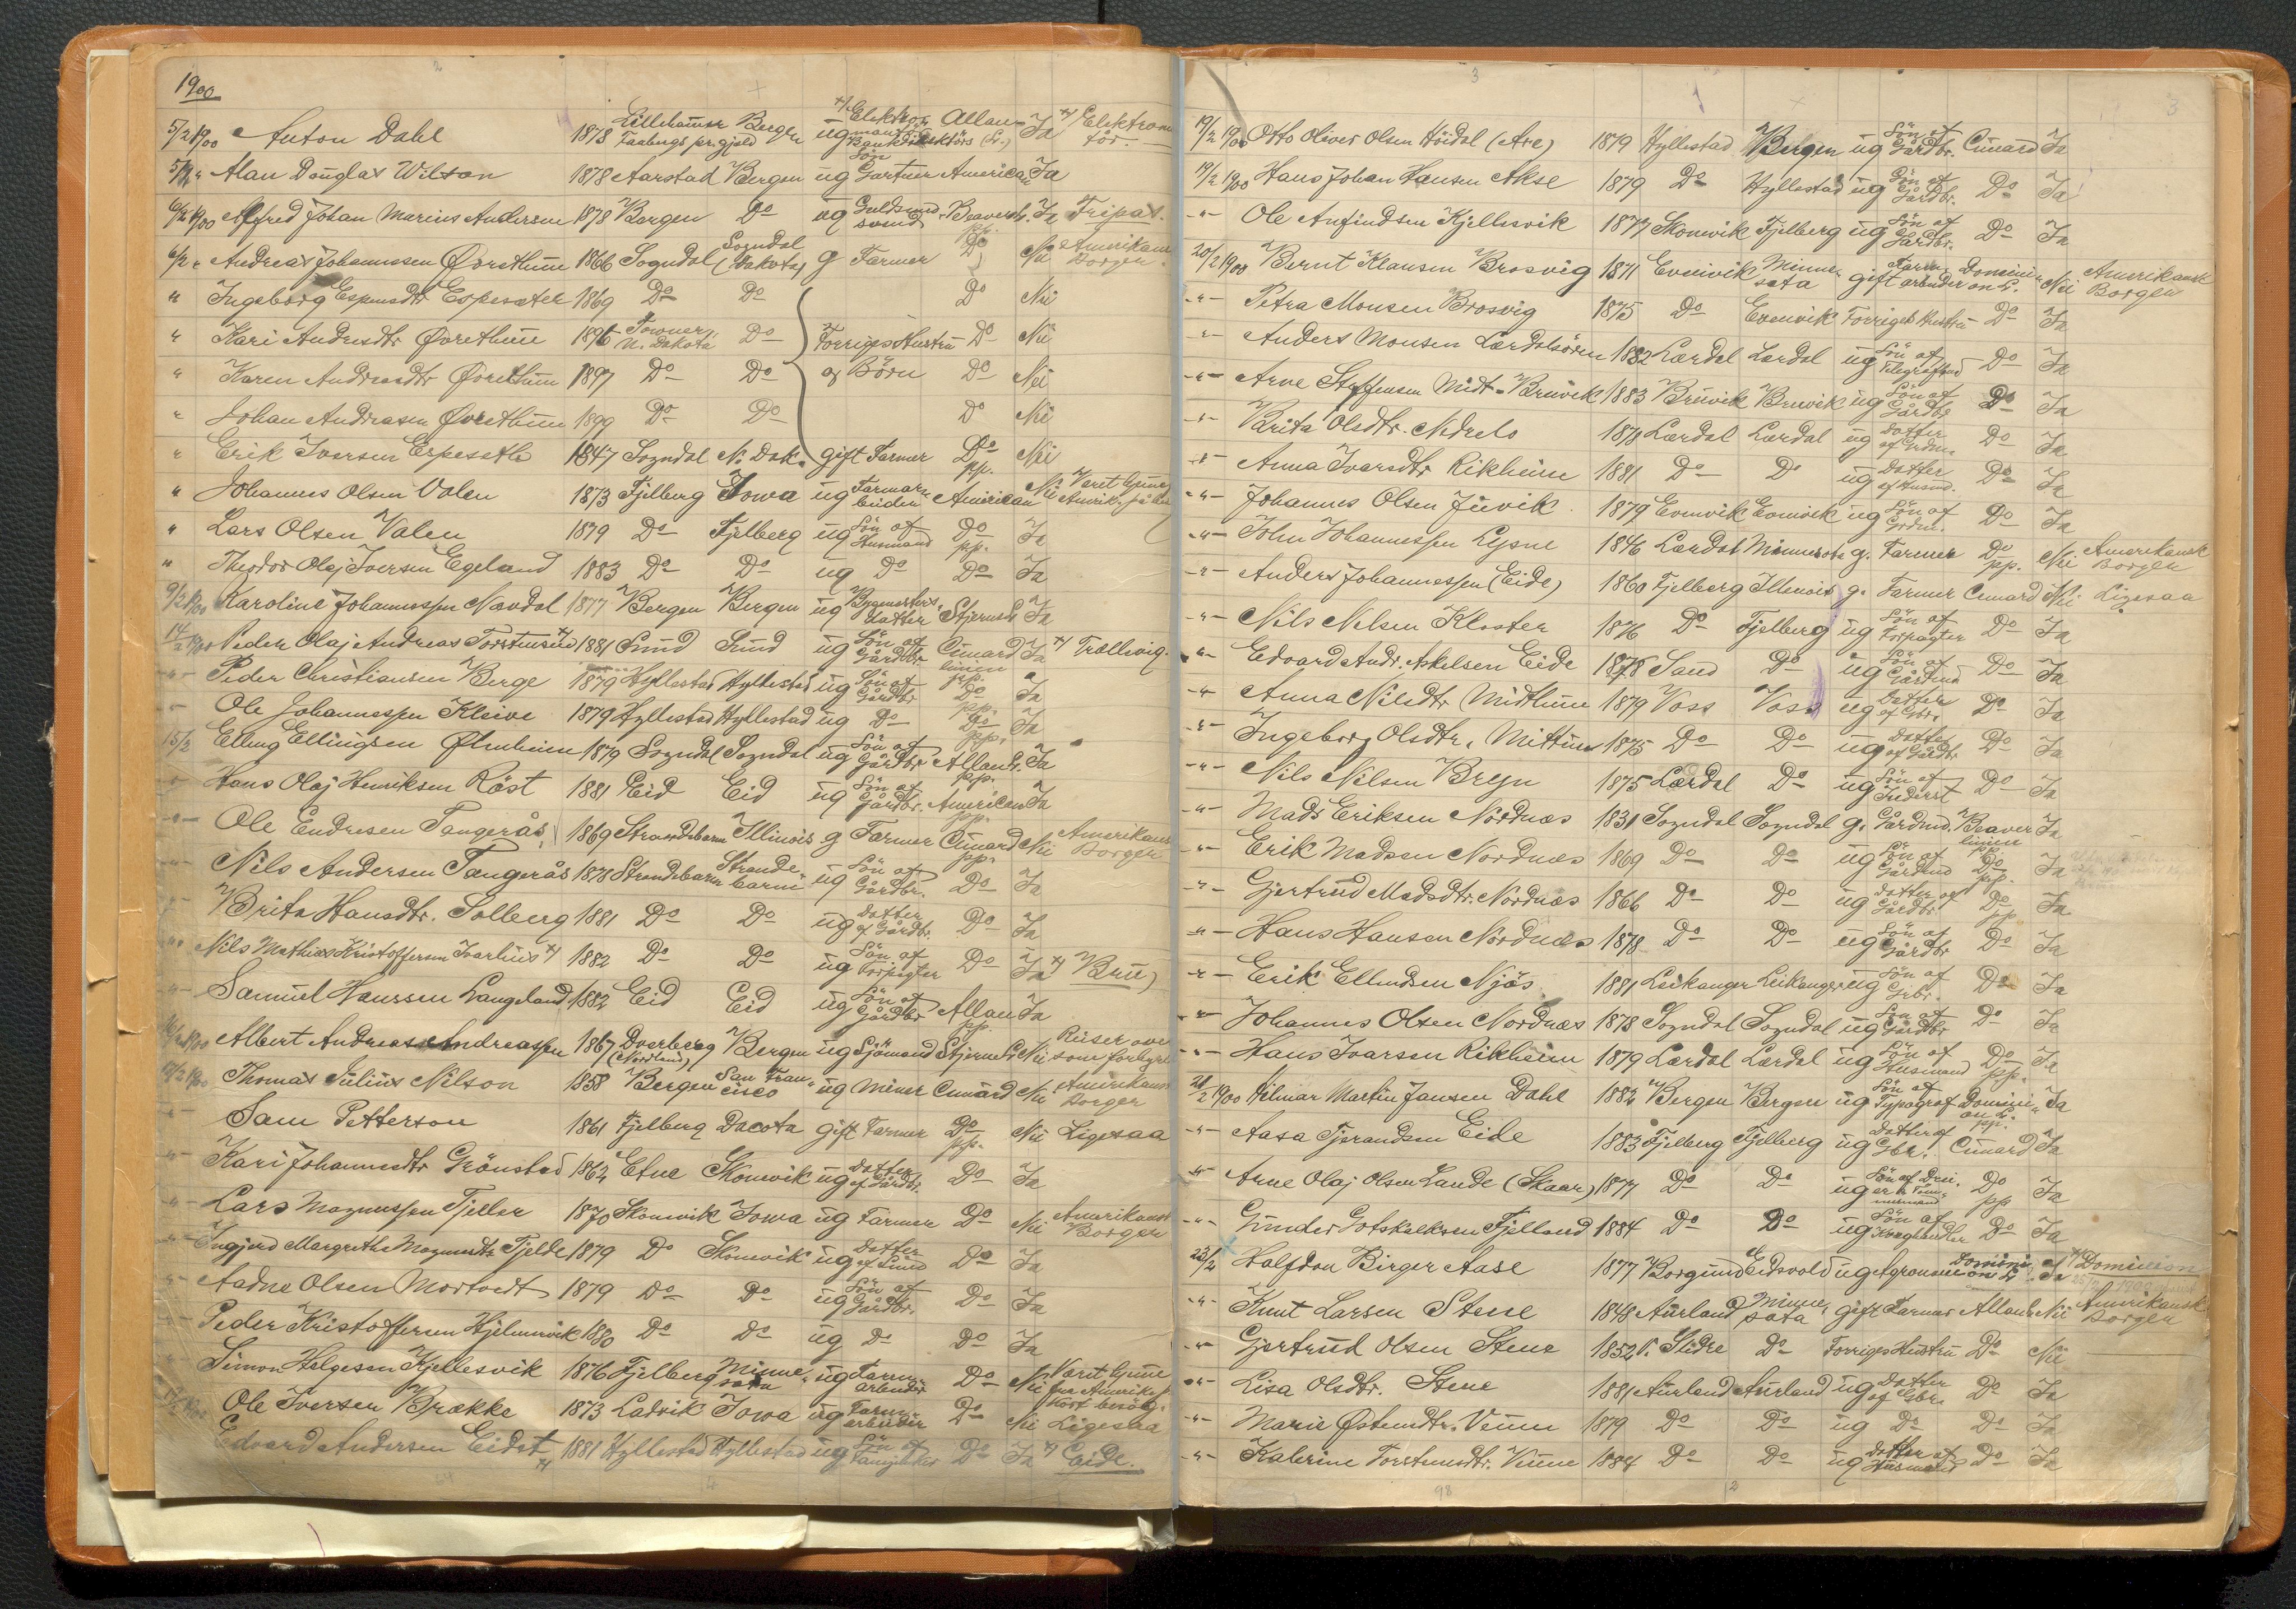 1900
5/2 1900 Anton Dahl 1873 Lillehammer Faabergs pr.gjeld Bergen ug Bankdirektörs Sön Allan Ja Elektromontör.
5/2 " Alan Douglas Wilson 1878 Aarstad Bergen ug Gartner American Ja
6/2 1900 Alfred Johan Marius Andersen 1878 Bergen Do ug Guldsmedsvend Beaver Ja Fripas.
6/2 " Andreas Johannesen Øvrethun 1866 Sogndal Sogndal (Dakota) g Farmer Do Nei Amerikansk Borger
" Ingeborg Espensdtr Espeseter 1869 Do Do Do Nei
" Kari Andreasdtr Øvrethun 1896 Towner N. Dakota Do Forriges Hustru Do Nei
" Karen Andreasdtr Øvrethun 1897 Do Do og Börn Do Nei
" Johan Andreasen Øvrethun 1899 Do Do Do Nei
" Erik Iversen Espeseth 1847 Sogndal N. Dak. gift Farmer Do pp. Nei
" Johannes Olsen Valen 1873 Fjelberg Iowa ug Farmarbeider American Nei
" Lars Olsen Valen 1879 Do Fjelberg ug Sön af Husmand Do pp. Ja
" Theodor Olaj Iversen Egeland 1883 Do Do ug Do Do Ja
9/2 1900 Karoline Johannessen Navdal 1877 Bergen Bergen ug Bygmesters datter Stjernel. Ja
14/2 1900 Peder Olaj Andreas Torstensen 1881 Sund Sund ug Sön af Gårdbr Cunard linien pp. Ja Trællevig.
-"- Peder Christiansen Berge 1879 Hyllestad Hyllestad ug Sön af Gårdbr Do pp. Ja
-"- Ole Johannessen Kleive 1879 Hyllestad Hyllestad ug Do Do pp. Ja
15/2 Elling Ellingsen Ølmheim 1879 Sogndal Sogndal ug Sön af Gårdbr Allanl. pp. Ja
-"- Hans Olaj Henriksen Röst 1881 Eid Eid ug Sön af Gårdbr. American pp. Ja
-"- Ole Endresen Tangerås 1869 Strandebarm Illinois g Farmer Cunard pp. Nei Amerikansk Borger
-"- Nils Andersen Tangerås 1878 Strandebarm Strandebarm ug Sön af Gårdbr. Do Ja
Brita Hansdtr. Solberg 1881 Do Do ug Datter af Gårdbr. Do Ja
-"- Nils Mathias Kristoffersen Ivarhus 1882 Do Do ug Sön af Forpagter Do Ja Bru)
-"- Samuel Hanssen Langeland 1882 Eid Eid ug Sön af Gårdbr Allan pp. Ja
Albert Andreas Andreassen 1867 Dverberg (Nordland) Bergen ug Sjömand Stjernel. Nei Reiser over som forhyret
Thomas Julius Nilson 1858 Bergen San Francisco ug Miner Cunard Nei Amerikansk Borger
Sam Petterson 1861 Fjelberg Dacota gift Farmer Do pp. Nei Ligesaa
-"- Kari Johannesdtr Grönstad 1862 Etne Skonevik ug Datter af Gårdbr. Do Ja
-"- Lars Magnussen Tjeller 1870 Skonevik Iowa ug Farmer Do Nei Amerikansk Borger
-"- Ingjerd Margrethe Magnusdtr Fjelde 1879 Do Skonevik ug Datter Do Ja
-"- Aadne Olsen Mortvedt 1879 Do Do ug Sön af Gårdbr. Do Ja
Peder Kristoffersen Hjelmevik 1880 Do Do ug Do Do Ja
Simon Helgesen Kjellesvik 1876 Fjelberg Minnesota ug Farmarbeider Do Nei Været hjemme fra Amerika på kort besög.
Ole Iversen Brække 1873 Ladvik Iowa ug Farmarbeider Do Nei Ligesaa
Edvard Andersen Eidet 1881 Hyllestad Hyllestad ug Sön af Do Ja Eide.
3
19/2 1900 Otto Oliver Olsen Höidal (Are) 1879 Hyllestad Bergen ug Sön af Gårdbr. Cunard Ja
19/2 1900 Hans Johan Hansen Akse 1879 Do Hyllestad ug Sön af Gårdbr. Do Ja
-"- Ole Anfindsen Kjellesvik 1877 Skonevik Fjelberg ug Sön af Gårdbr. Do Ja
20/2 1900 Bernt Klausen Brosvig 1871 Evenvik Minnesota gift Farmarbeider Dominion L. Nei Amerikansk Borger
-"- Petra Monsen Brosvig 1875 Do Evenvik Forriges Hustru Do Ja
-"- Anders Monsen Lærdalsören 1882 Lærdal Lærdal ug Sön af Do Ja
-"- Arne Steffensen Midt-Bruvik 1883 Bruvik Bruvik ug Sön af Gårdbr Do Ja
-"- Brita Olsdtr. Nedrelo 1878 Lærdal Lærdal ug Datter Do Ja
-"- Anna Ivarsdtr Rikheim 1881 Do Do ug Datter af Husmd. Do Ja
-"- Johannes Olsen Juvik 1879 Evenvik Evenvik ug Sön af Do Ja
-"- John Johannessen Lysne 1846 Lærdal Minnesota g. Farmer Do pp. Nei Amerikansk Borger
-"- Anders Johannessen (Eide) 1860 Fjelberg Illinois g. Farmer Cunard Nei Ligesaa
-"- Nils Nilsen Kloster 1876 Do Fjelberg ug Sön af Forpagter Do Ja
-"- Edvard Andr. Askelsen Eide 1878 Sand Do ug Sön af Gårdmd Do Ja
-"- Anna Nilsdtr Midthun 1879 Voss Voss ug Datter af Gbr. Do Ja
-"- Ingeborg Olsdtr. Mittun 1875 Do Do ug Datter af Gårdbr. Do Ja
-"- Nils Nilsen Bregn 1875 Lærdal Do ug Sön af Inderst Do Ja
-"- Mads Eriksen Nordnæs 1831 Sogndal Sogndal g. Gårdmd. Beaver linien pp. Ja
-"- Erik Madsen Nordnæs 1869 Do Do ug Sön af Gårdmd Do pp. Ja
-"- Gjertrud Madsdtr. Nordnæs 1866 Do Do ug Datter af Gårdbr Do pp Ja
-"- Hans Hansen Nordnæs 1878 Do Do ug Sön af Gårdbr Do Ja
-"- Erik Ellendsen Njös 1881 Leikanger Leikanger ug Sön af Do Ja
-"- Johannes Olsen Nordnæs 1878 Sogndal Sogndal ug Sön af Gårdbr Do Ja
-"- Hans Ivarsen Rikheim 1879 Lærdal Lærdal ug Sön af Husmand Do pp. Ja
21/2 1900 Hilmar Martin Jansen Dahl 1882 Bergen Bergen ug Sön af Typograf Dominion L. pp. Ja
-"- Aasa Tjerandsen Eide 1883 Fjelberg Fjelberg ug Datter af Gbr. Cunard Ja
-"- Arne Olaj Olsen Lande (Skaar) 1877 Do Do ug Do pp Ja
-"- Gunder Gotskalksen Fjelland 1884 Do Do ug Sön af Do Ja
23/2 Halfdan Birger Aase 1877 Borgund Eidsvold ug Agronom Dominion L. Ja Dominion
-"- Knut Larsen Stene 1848 Aurland Minnesota gift Farmer Allanl. Nei Amerikansk Borger
-"- Gjertrud Olsen Stene 1852 V. Slidre Do Forriges Hustru Do Nei
-"- Lisa Olsdtr. Stene 1881 Aurland Aurland ug Datter af Gbr. Do Ja
-"- Marie Østensdtr. Vinne 1879 Do Do ug Do Do Ja
-"- Katerine Torstensdtr. Vinne 1884 Do Do ug Datter af Husmand Do Ja
98